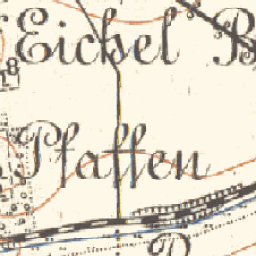 Eichel B
8
Pfaffen
P